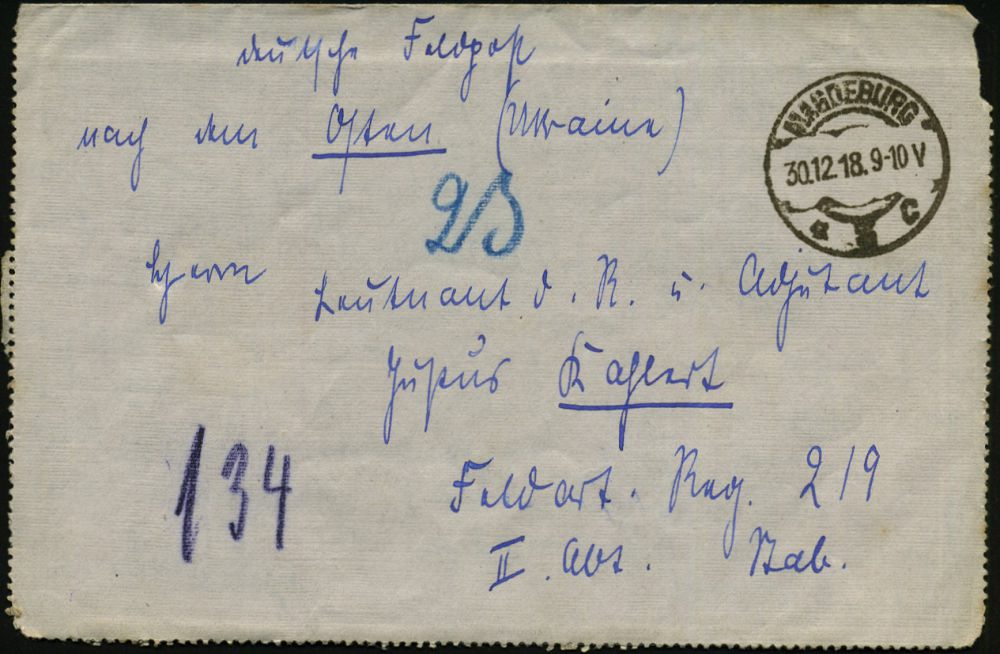 deutsche Feldpost
nach dem Osten (Ukraine)
MAGDEBURG
30.12.18.9-10 V
* C
Herrn Leutnant d. R. u. Adjutant
Justus Kahlert
134
Feldart. Reg. 219
II. Abt. Stab.